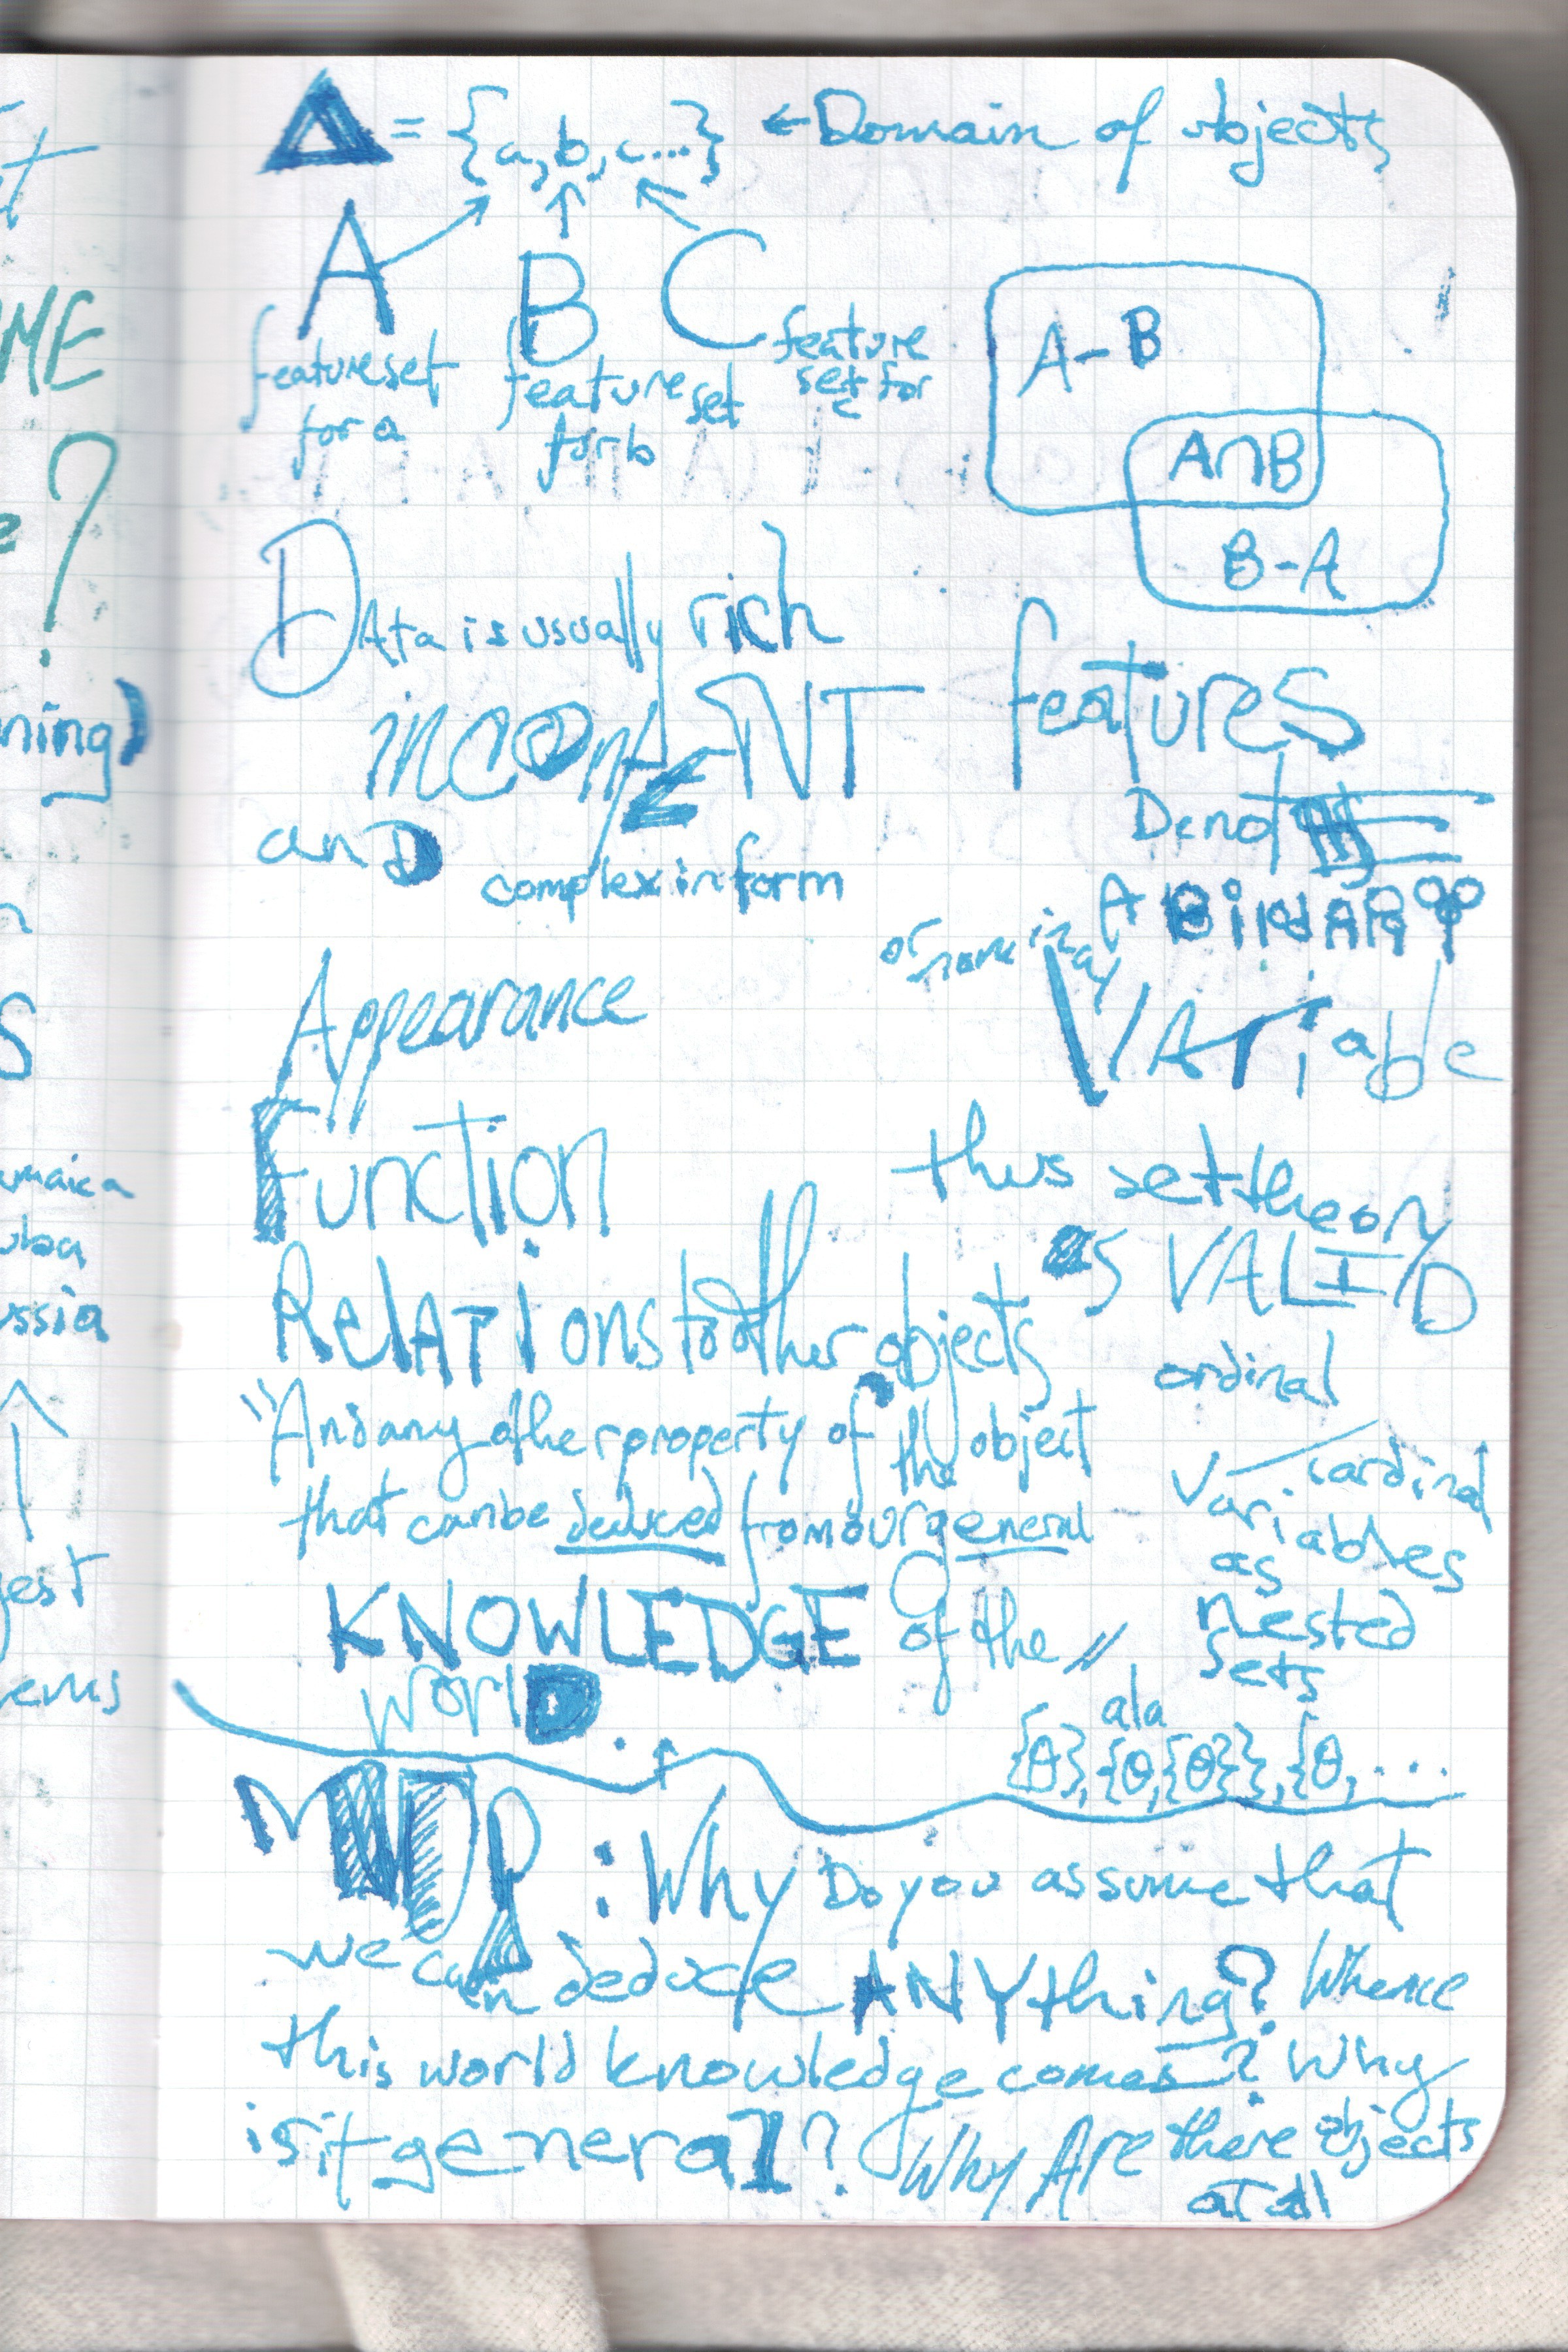 Δ = {a, b, c...} ← Domain of objects
A B C
feature set for a
feature set for b
feature set for c
A-B
A∩B
B-A
DAta is usually rich
in contENT
anD
complex in form
Appearance
Function
RelATIons to other objects
"And any other property of the object
that can be deduced from our general
KNOWLEDGE of the
worlD."
features
Denote
A BiNARY
or nominal
VAriable
thus set theory
is VALID
ordinal
cardinal
variables
as
nested
sets
ala
{θ}, {θ,{θ}}, {θ, ...
MDP: Why Do you assume that
we can deduce ANYthing? Whence
this world knowledge comes? Why
is it general? Why Are there objects
at all
ME
?
ning)
S
maica
uba
ussia
gest